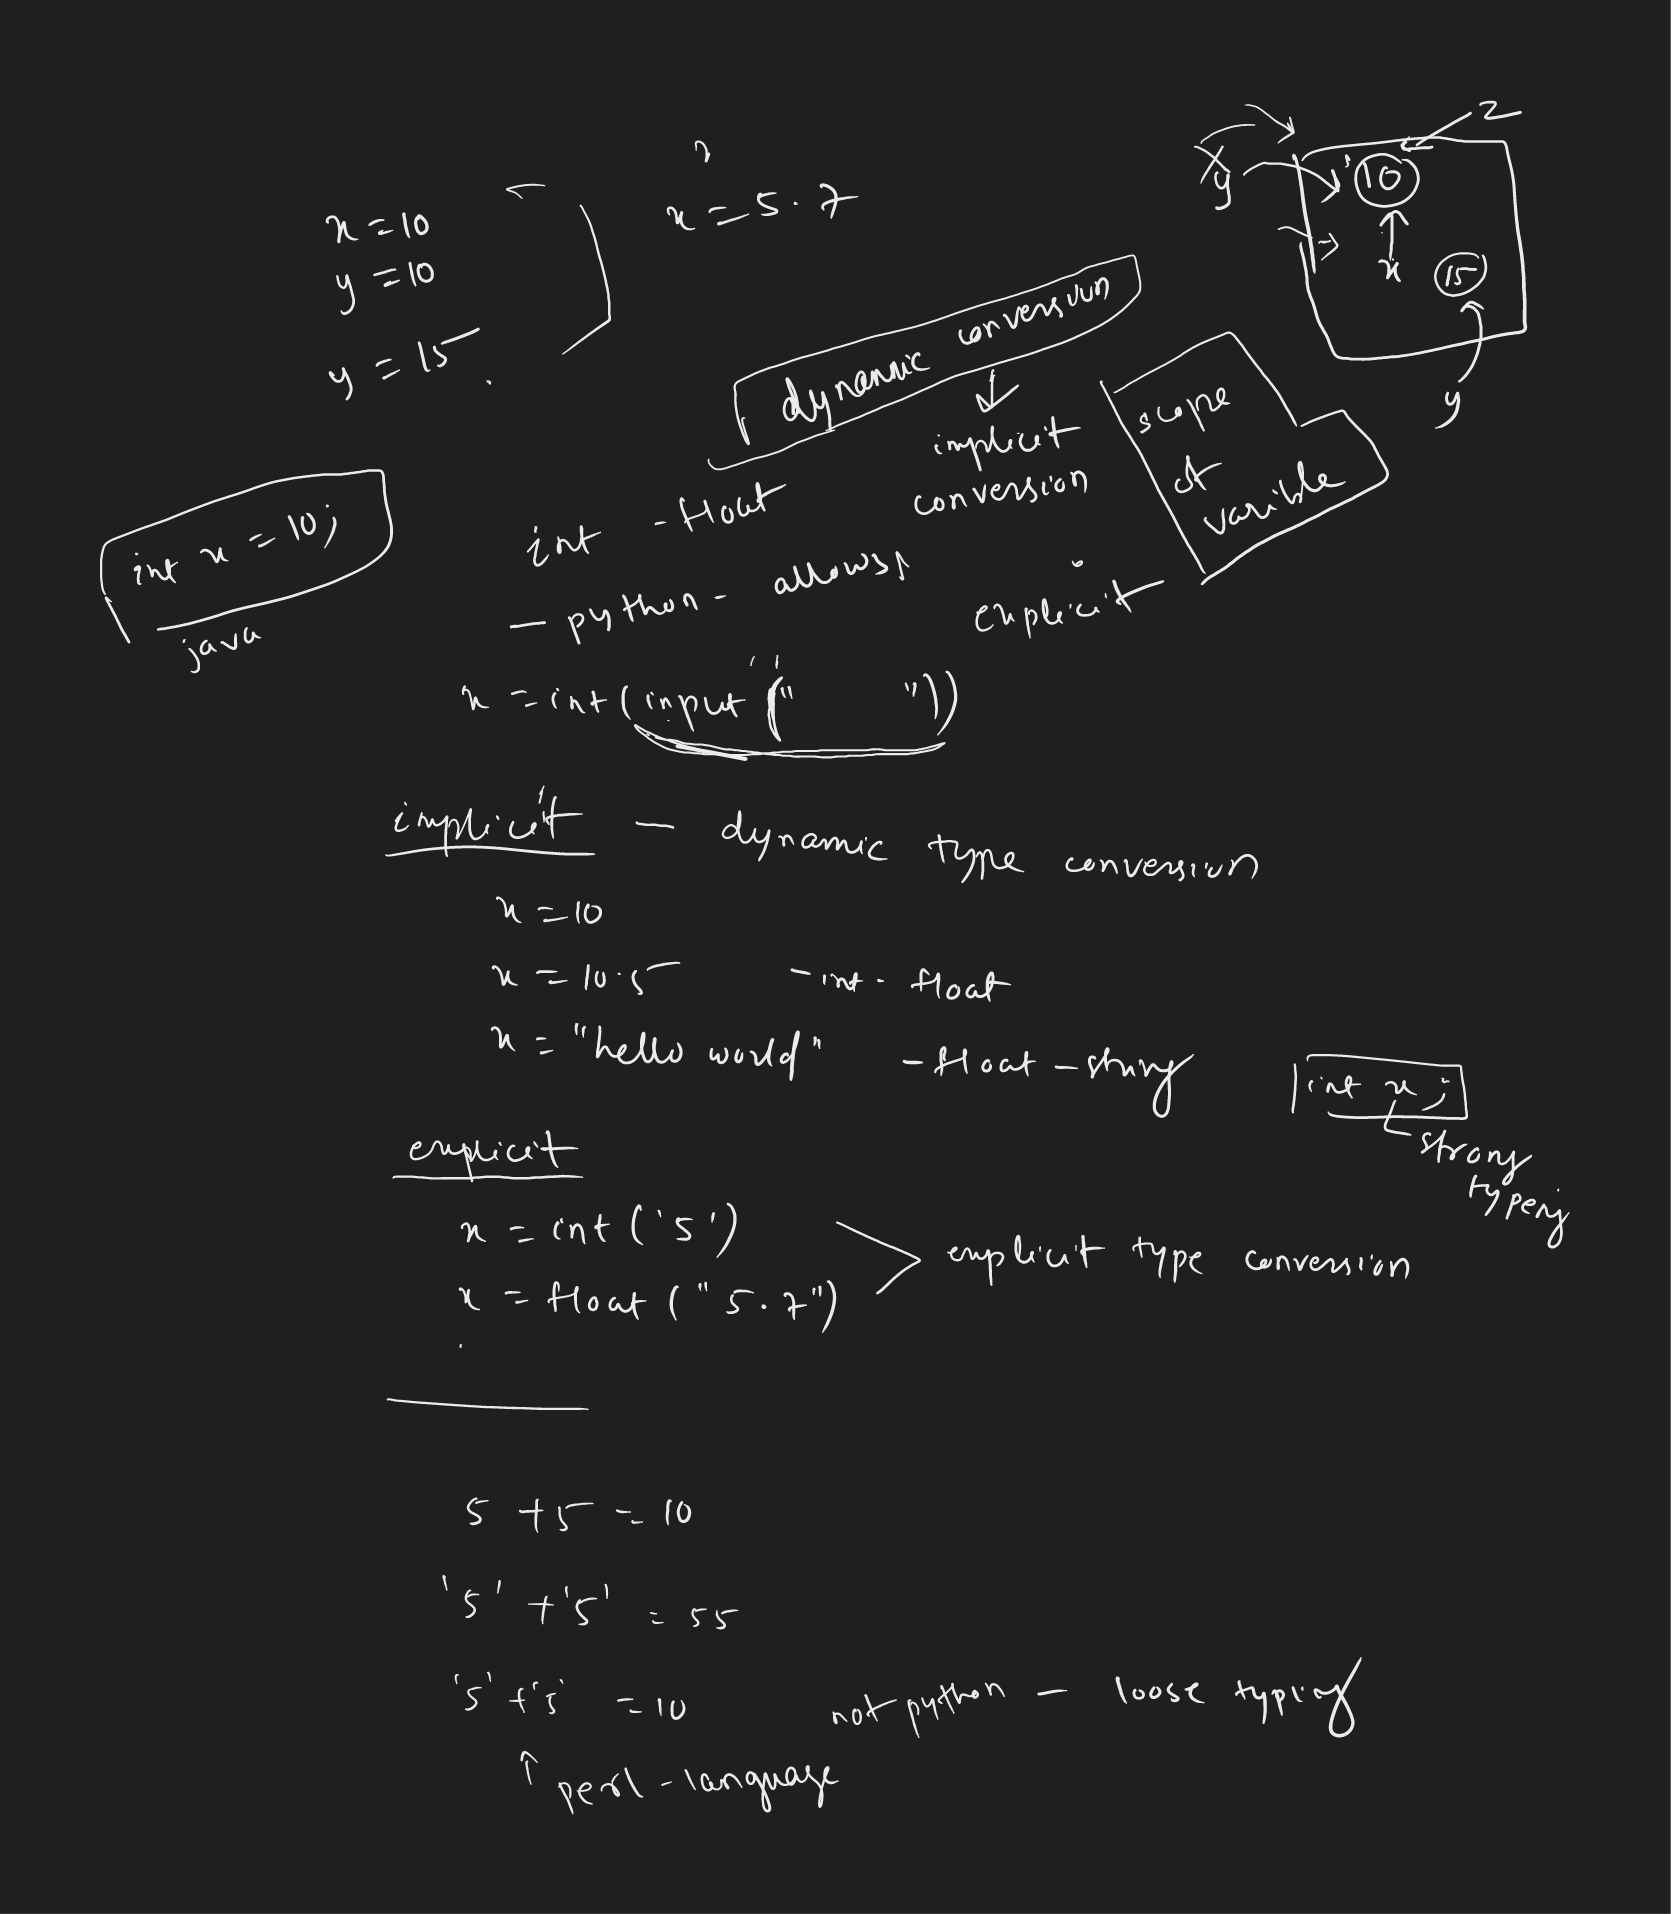 x = 10
y = 10
y = 15
x = 5.7
2
x
y
10
x
15
y
dynamic conversion
implicit
conversion
scope
of
varible
int x = 10;
java
int - float
- python - allows
explicit
x = int(input(" "))
implicit - dynamic type conversion
x = 10
x = 10.5 - int - float
x = "hello world" - float - string
int x;
strong
typeing
explicit
x = int('5')
x = float("5.7")
explicit type conversion
5 + 5 = 10
'5' + '5' = 55
'5' + '5' = 10 not python - loose typing
perl - language